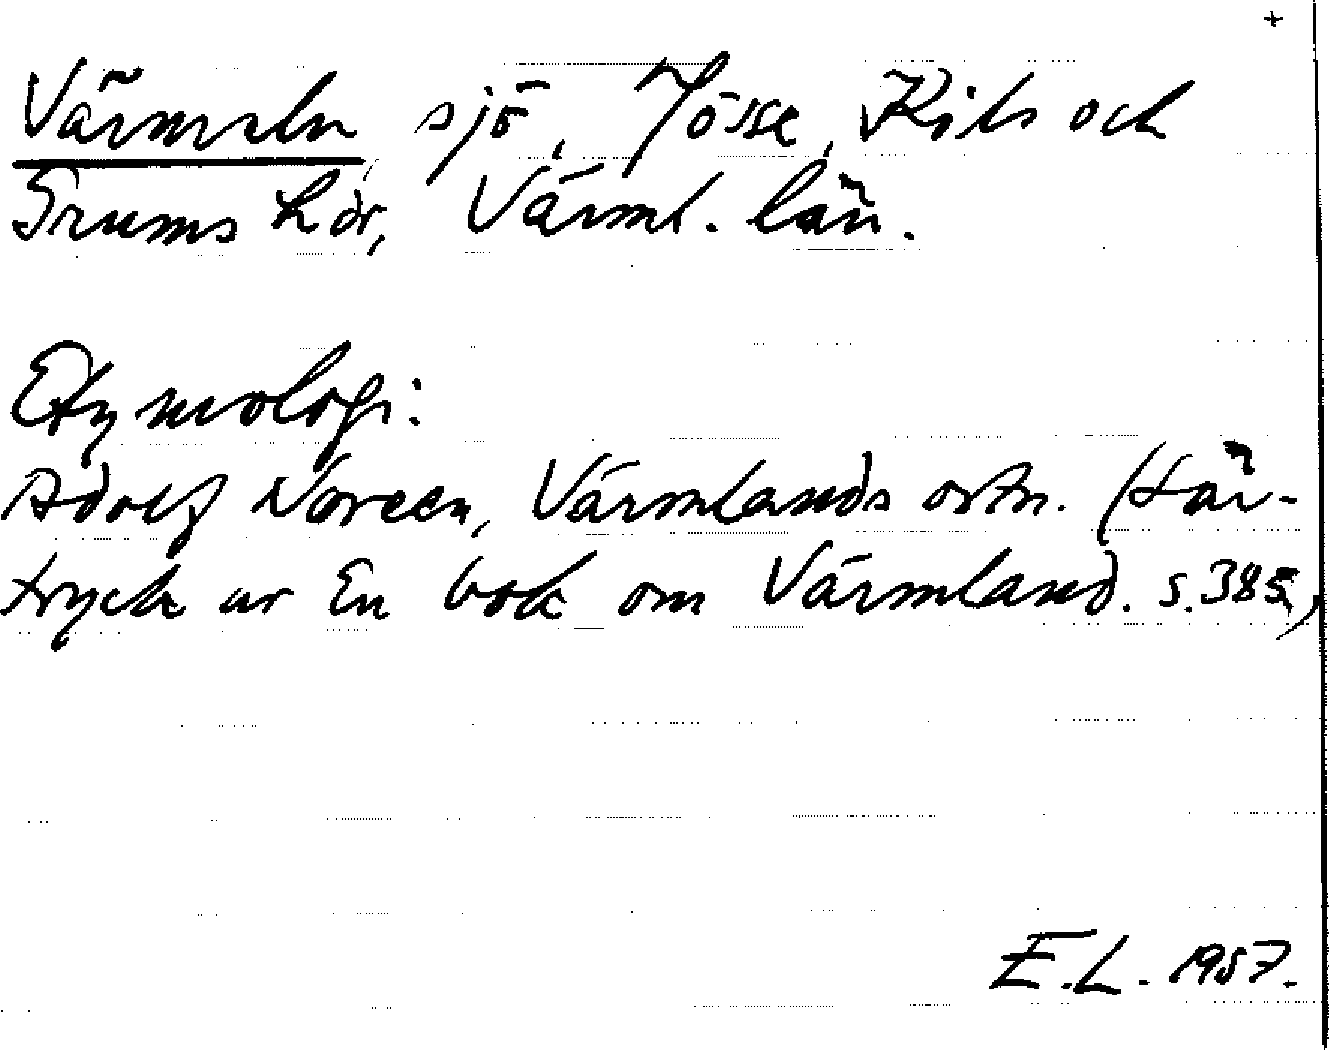 +
Värmeln sjö, Jösse, Kils och
Grums hdr, Värml. län.
Etymologi:
Adolf Noreen, Värmlands ortn. (Sär-
tryck ur En bok om Värmland. s. 385,)
E.L. 1957.